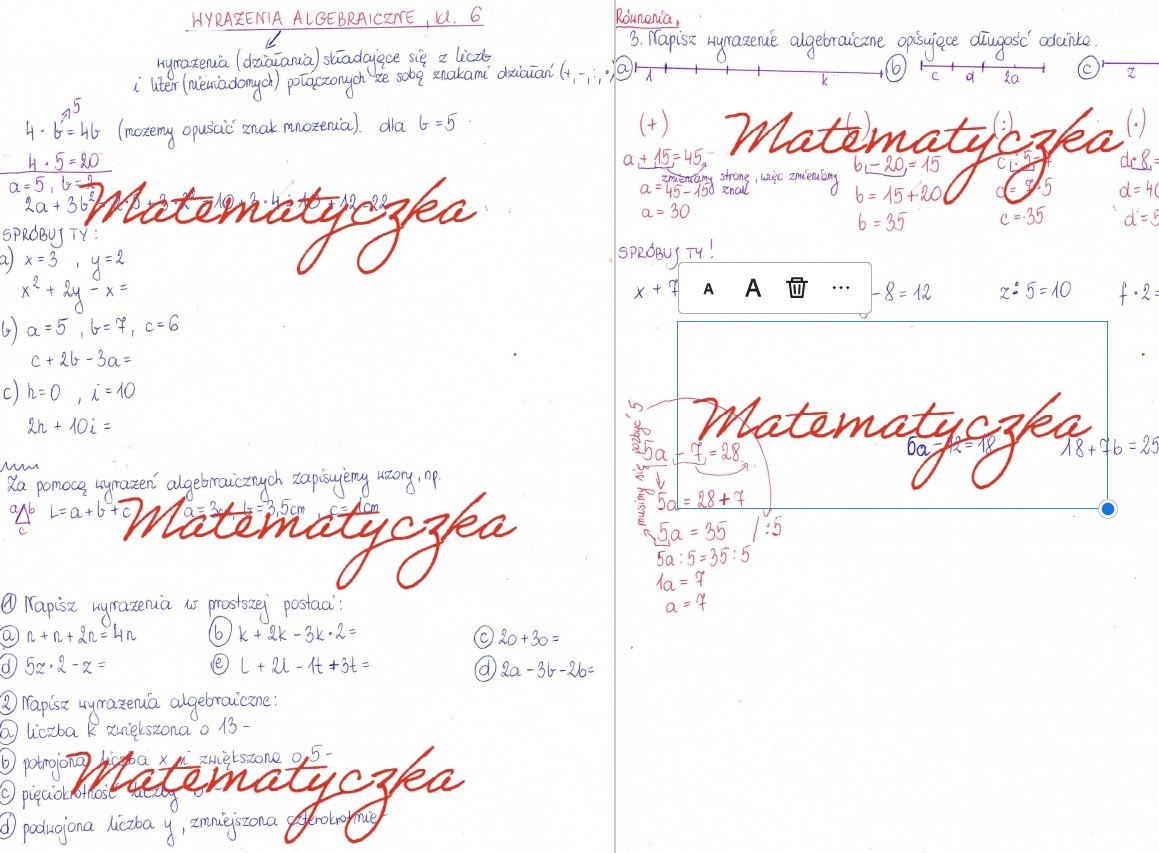 WYRAŻENIA ALGEBRAICZNE, kl. 6
wyrażenia (działania) składające się z liczb
i liter (niewiadomych) połączonych ze sobą znakami działań (+, -, :, ·)
5
4 · b = 4b (możemy opuścić znak mnożenia). dla b = 5
4 · 5 = 20
a = 5, b = 2
2a + 3b²
Matematyczka
SPRÓBUJ TY:
a) x = 3 , y = 2
x² + 2y - x =
b) a = 5 , b = 7, c = 6
c + 2b - 3a =
c) h = 0 , i = 10
2h + 10i =
Za pomocą wyrażeń algebraicznych zapisujemy wzory, np.
a b c L = a + b + c a = 3cm, b = 3,5cm , c = 4cm
Matematyczka
1 Napisz wyrażenia w prostszej postaci:
a n + n + 2n = 4n b k + 2k - 3k · 2 = c 2o + 3o =
d 5z · 2 - z = e l + 2l - 1t + 3t = d 2a - 3b - 2b =
2 Napisz wyrażenia algebraiczne:
a liczba k zwiększona o 13 -
b potrojona liczba x i zwiększona o 5 -
Matematyczka
c pięciokrotność liczby
d podwojona liczba y, zmniejszona czterokrotnie
Równania,
3. Napisz wyrażenie algebraiczne opisujące długość odcinka.
a 1 k b c d 2a c z
(+) (:) (·)
Matematyczka
a + 15 = 45 b - 20 = 15 c : 5 = d · 8 =
zmieniamy stronę, więc zmieniamy
znak
a = 45 - 15 b = 15 + 20 c = 7 · 5 d = 40
a = 30 b = 35 c = 35 d = 5
SPRÓBUJ TY!
x + 7 - 8 = 12 z : 5 = 10 f · 2 =
A A ...
Matematyczka
musimy się pozbyć 5
5a - 7 = 28 6a - 12 = 18 18 + 7b = 25
5a = 28 + 7
5a = 35 / : 5
5a : 5 = 35 : 5
1a = 7
a = 7